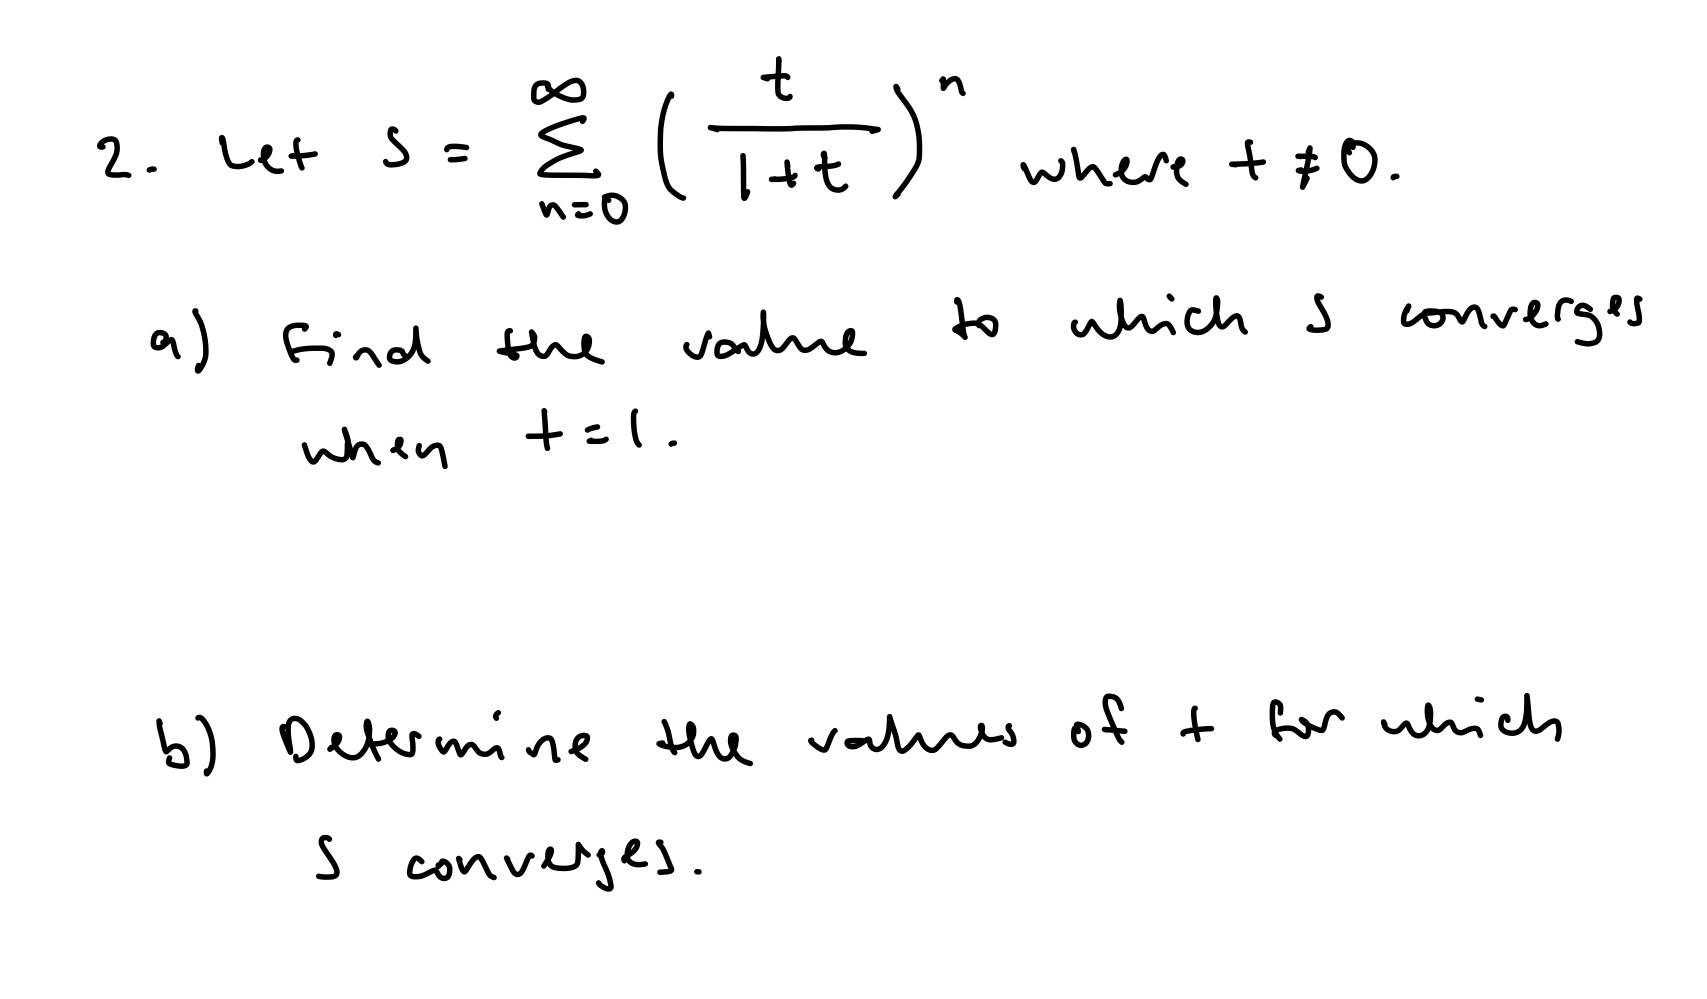 2. Let S = ∞∑n=0 (t/(1+t))^n where t ≠ 0.
a) Find the value to which S converges
when t = 1.
b) Determine the values of t for which
S converges.